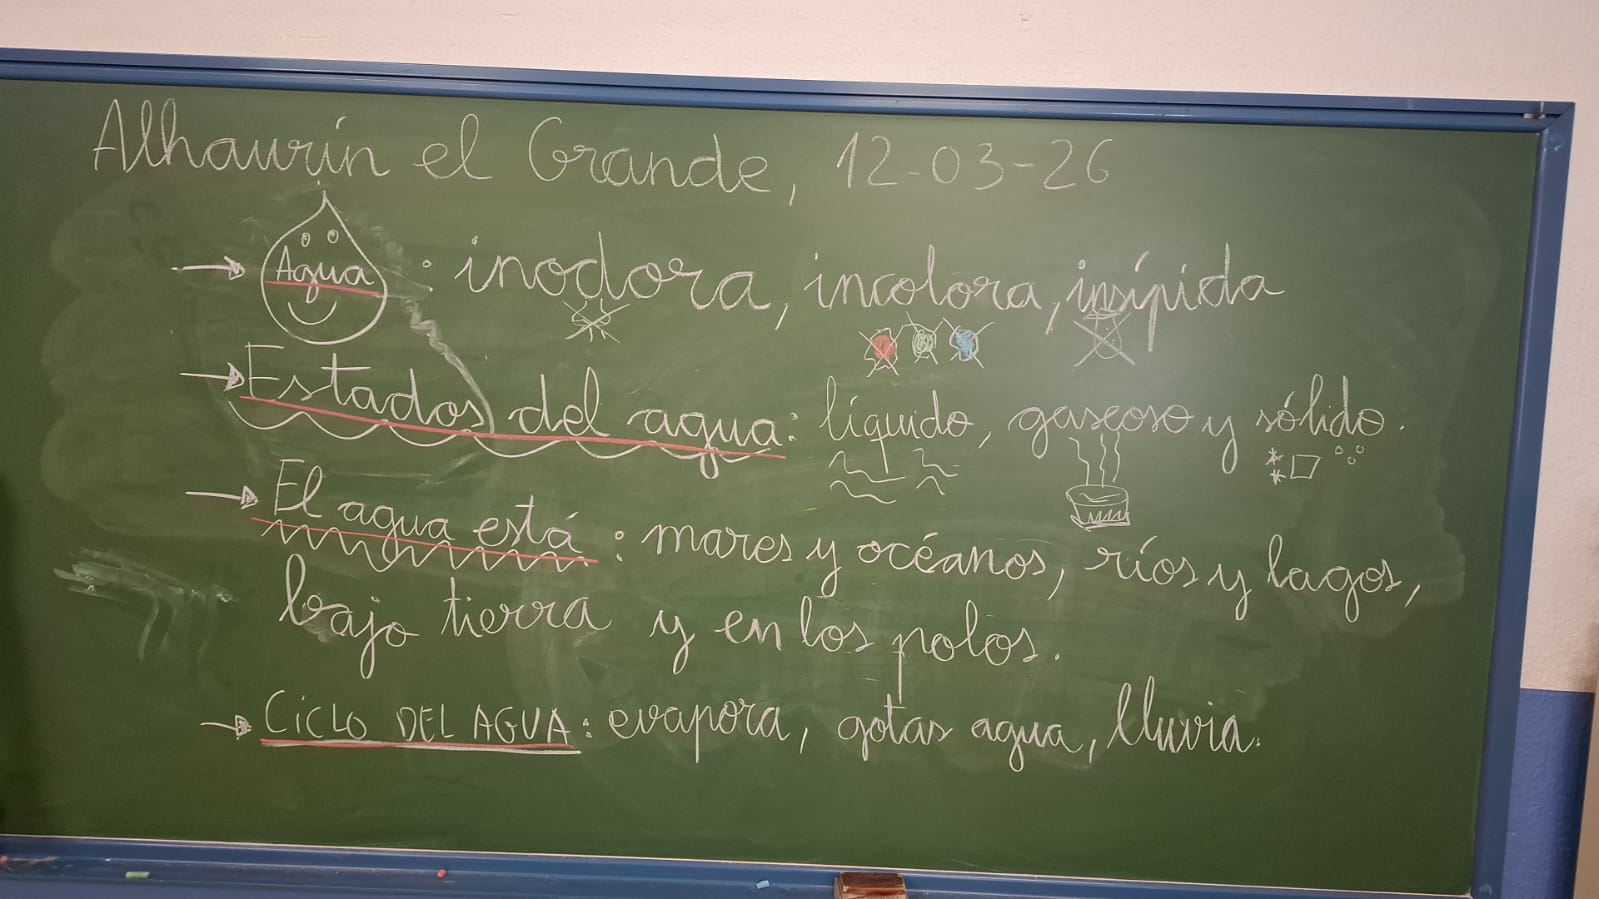 Alhaurín el Grande, 12-03-26
→ Agua : inodora, incolora, insípida
→ Estados del agua: líquido, gaseoso y sólido.
→ El agua está : mares y océanos, ríos y lagos,
bajo tierra y en los polos.
→ CICLO DEL AGUA : evapora, gotas agua, lluvia.